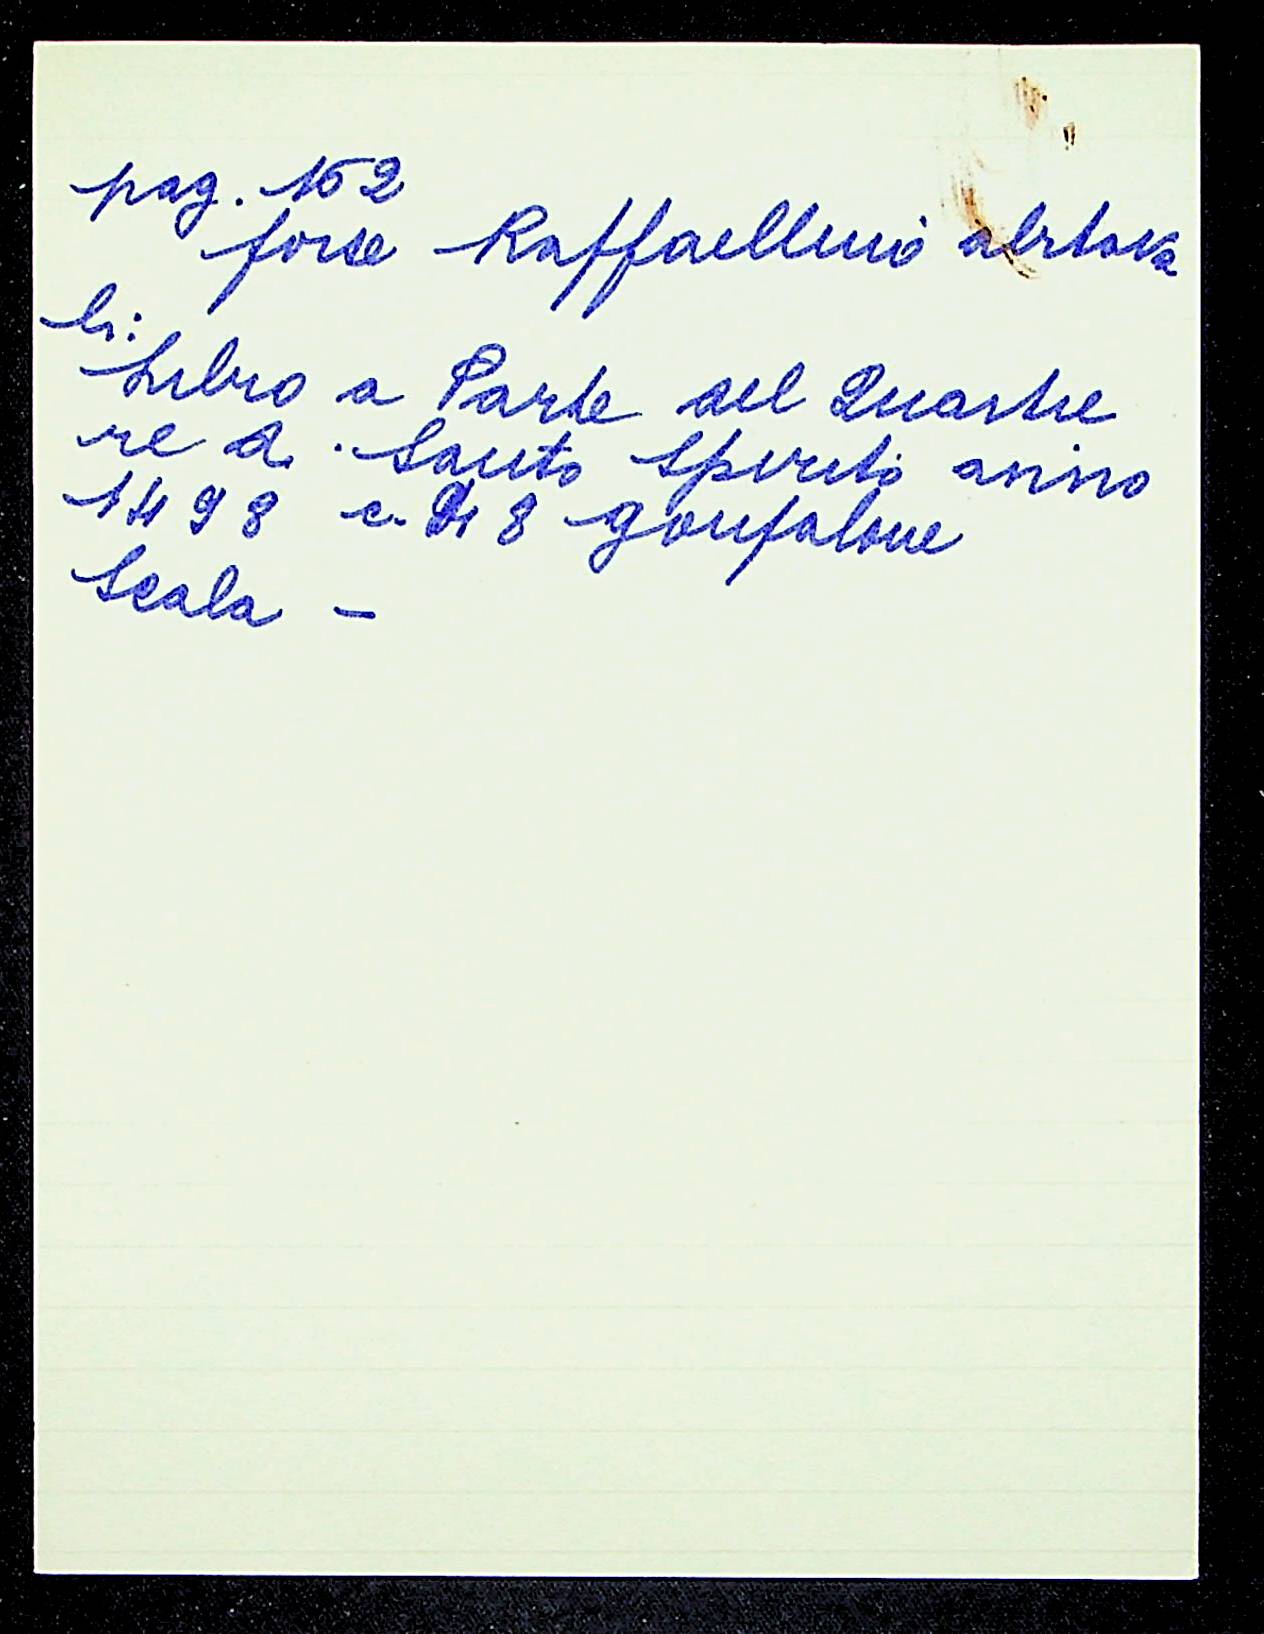 pag. 152
forse Raffaellino abitava
lì:
Libro a Parte del Quartie
re di Santo Spirito anno
1498 c. 8 gonfalone
Scala –